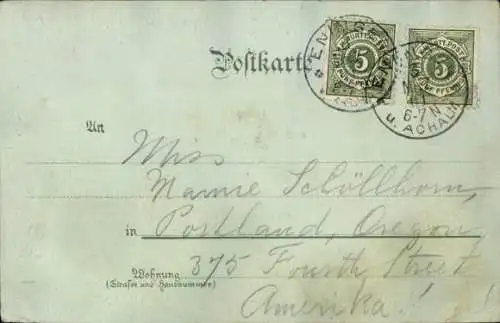 Postkarte
5
5
6-7 N
u. ACHALM
An
Miss
Mamie Schöllhorn,
in Portland, Oregon
Wohnung 375 Fourth Street
(Straße und Hausnummer)
Amerika!!